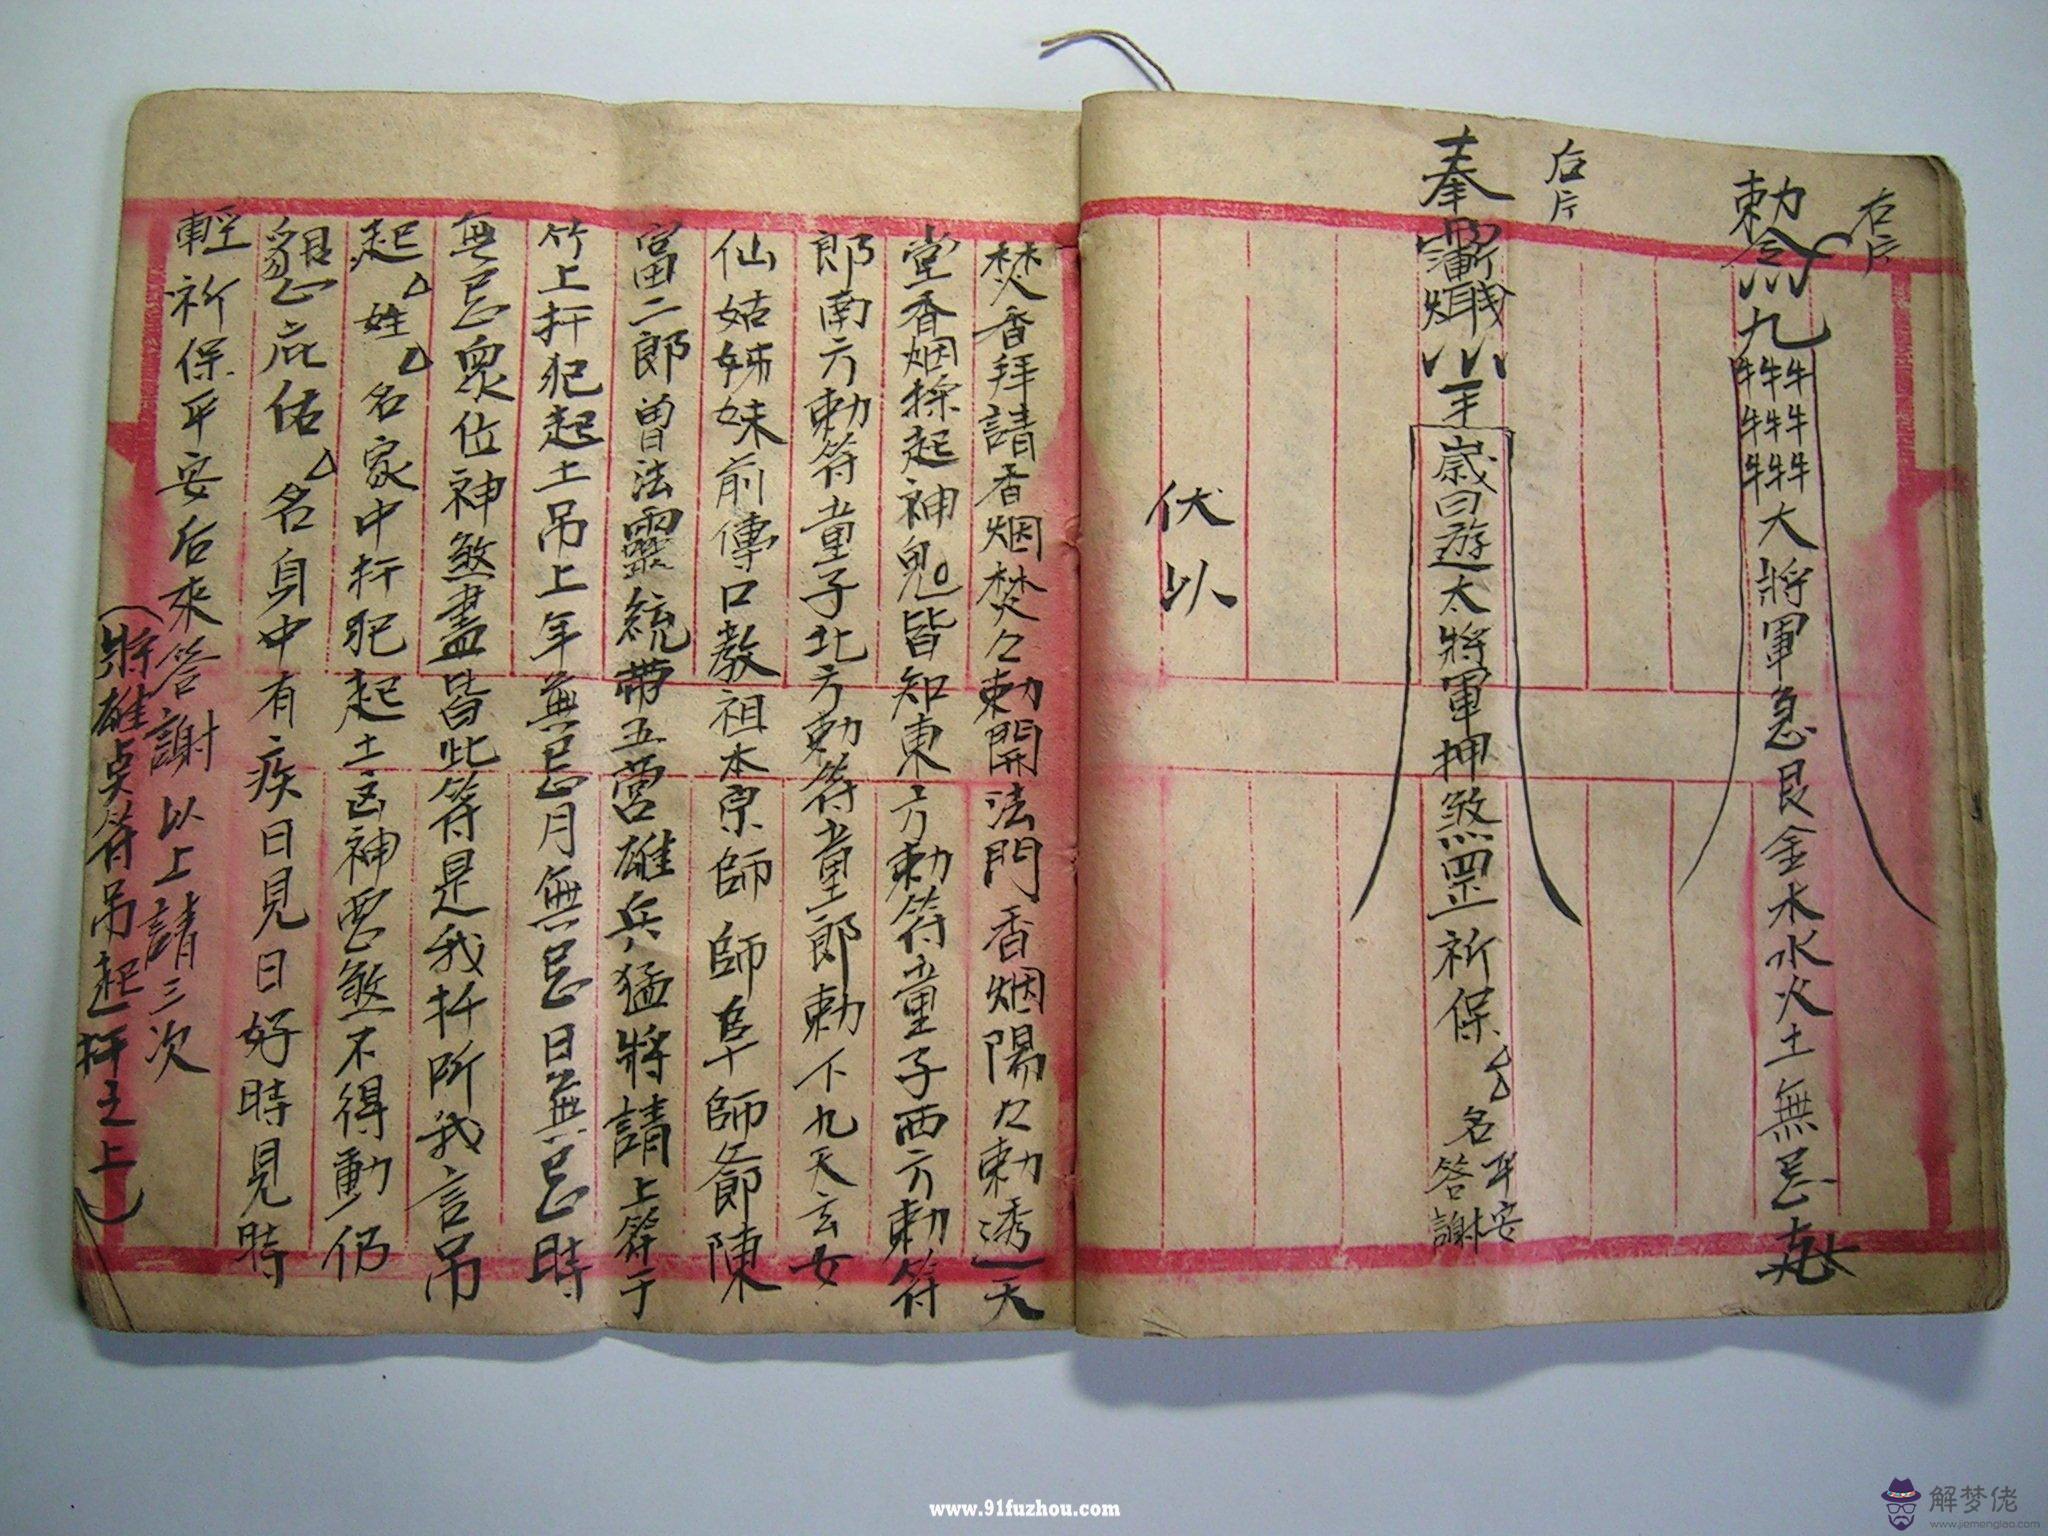 右片
勅令九牛牛牛牛牛牛牛牛牛大將軍急艮金木水火土無忌
后片
奉
歲曰遊太將軍押煞罡祈保△△名平安答謝
伏以
焚香拜請香烟焚々勅開法門香烟陽々勅透天
堂香烟探起神鬼皆知東方勅符童子西方勅符
郎南方勅符童子北方勅符童郎勅下九天玄女
仙姑姊妹前傳口教祖本宗師師阜師爺陳
富二郎曾法靈統帶五营雄兵猛將請上符于
竹上扞犯起土吊上年無忌月無忌日無忌時
無忌眾位神煞盡皆此符是我扦所我言吊
起△姓△名家中扞犯起土凶神惡煞不得動仍
懇庇佑△名身中有疾日見日好時見時
輕祈保平安后來答謝以上請三次
(將雄点符吊起扞之上)
www.91fuzhou.com
解梦佬
www.jiemenglao.com